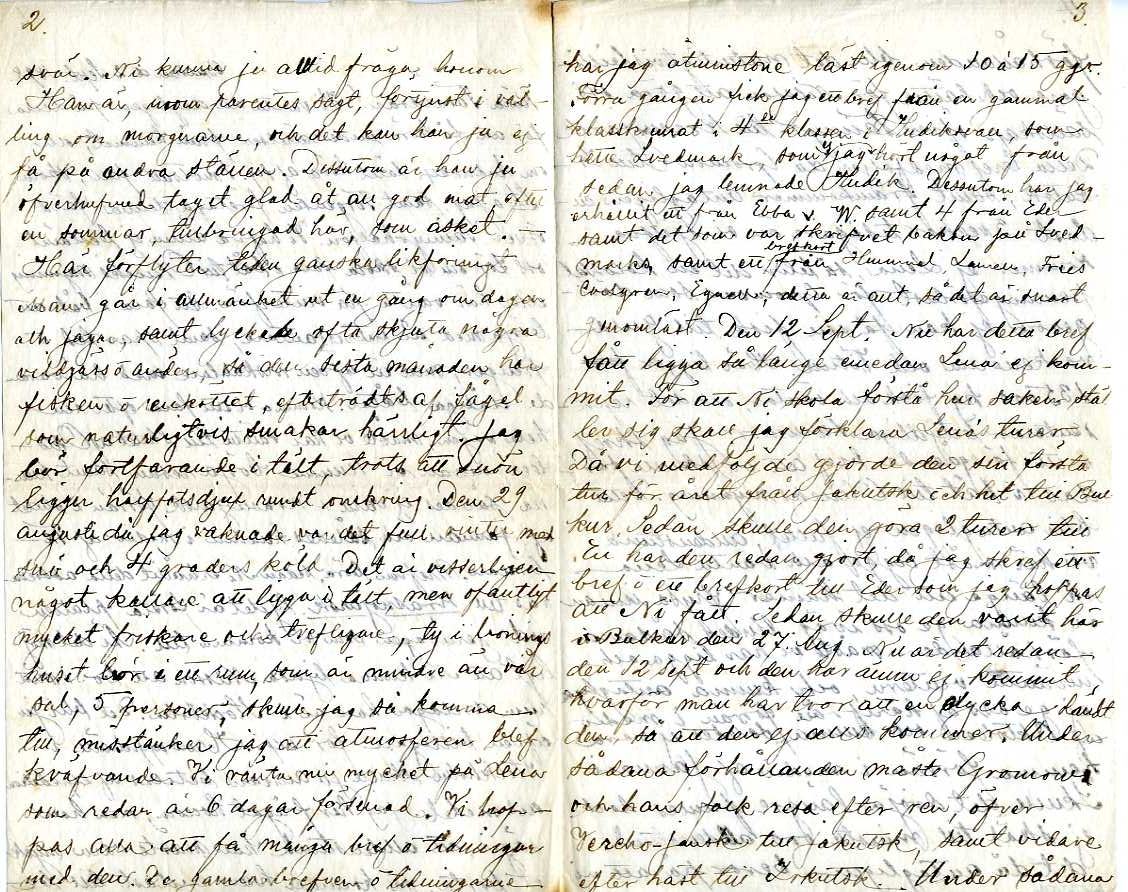 2.
svår. Ni kunna ju alltid fråga honom
Han är, inom parentes sagt, förtjust i väl-
ling om morgnarne, och det kan han ju ej
få på andra ställen. Dessutom är han ju
öfverhufvud taget glad åt all god mat, efter
en sommar, tillbringad här, som asket. —
Här förflyter tiden ganska likformigt
Man går i allmänhet ut en gång om dagen
att jaga, samt lyckas ofta skjuta några
vildgäss ö änder, så den sista månaden har
fisken ö renköttet, efterträdts af fågel
som naturligtvis smakar härligt. Jag
bor fortfarande i tält, trots att snön
ligger halffotsdjup rundt omkring. Den 29
augusti då jag vaknade var det full vinter med
snö och 4 graders köld. Det är visserligen
något kallare att ligga i tält, men ofantligt
mycket friskare och trefligare, ty i bonings
huset bor i ett rum, som är mindre än vår
sal, 5 personer, skulle jag så komma
till, misstänker jag att atmosferen blef
kväfvande. Vi vänta nu mycket på Lena
som redan är 6 dagar försenad. Vi hop-
pas alla att få många bref ö tidningar
med den. De gamla brefven ö tidningarne
3.
har jag åtminstone läst igenom 10 à 15 ggr.
Förra gången fick jag ett bref från en gammal
klasskamrat i 4de klassen i Hudiksvall, som
hette Svedmark, som jag hört något från
sedan jag lemnade Hudik. Dessutom har jag
erhållit ett från Ebba v. W. samt 4 från Eder
samt det som var skrifvet bakom på Sved-
marks, samt ett brefkort från Hammad, Lamen, Fries
Cedergren, Egnell, detta är allt, så det är snart
genomläst. Den 12 Sept. Nu har detta bref
fått ligga så länge emedan Lena ej kom-
mit. För att Ni skola förstå hur saken stäl
ler sig skall jag förklara Lena's turer
Då vi medföljde gjorde den sin första
tur för året från Jakutsk och hit till Bul
kur. Sedan skulle den göra 2 turer till
En har den redan gjort, då jag skref ett
bref ö ett brefkort till Eder som jag hoppas
att Ni fått. Sedan skulle den varit här
i Bulkur den 27 Aug. Nu är det redan
den 12 Sept och den har ännu ej kommit
hvarför man här tror att en olycka händt
den, så att den ej alls kommer. Under
sådana förhållanden måste Gromow
och hans folk resa efter ren, öfver
Vercho-jansk till Jakutsk, samt vidare
efter häst till Irkutsk. Under sådana